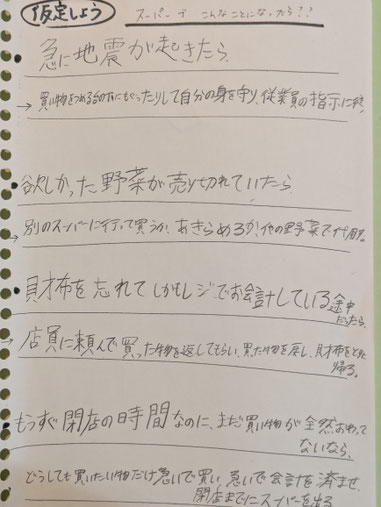 仮定しよう スーパーで こんなことになったら??
・急に地震が起きたら、
→ 買い物をつめる台の下にもぐったりして自分の身を守り、従業員の指示に
・欲しかった野菜が売り切れていたら、
→ 別のスーパーに行って買うか、あきらめるか、他の野菜で代用。
・財布を忘れてしかもレジでお会計している途中
だったら、
→ 店員に頼んで買った物を返してもらい、買た物を戻し、財布をとりに
帰る。
・もうすぐ閉店の時間なのに、まだ買い物が全然おわって
ないなら、
どうしても買いたい物だけ急いで買い、急いで会計を済ませ、
閉店までにスーパーを出る